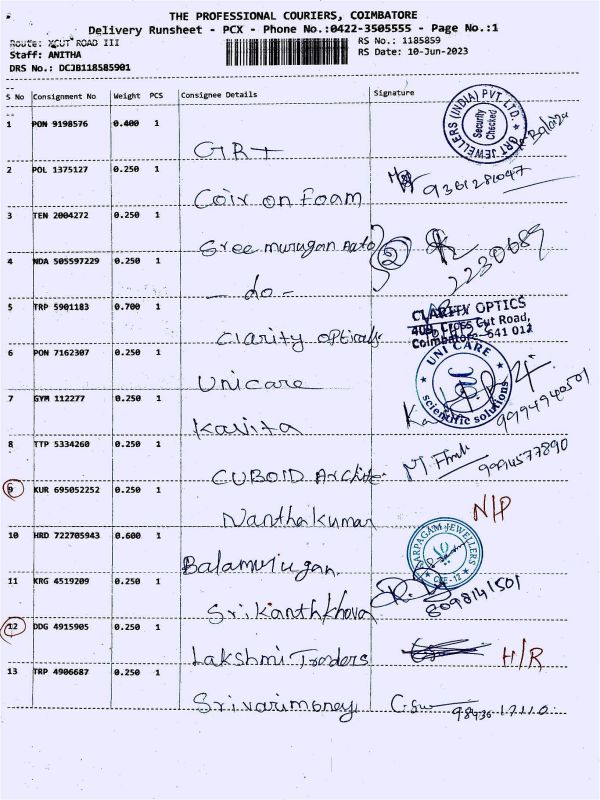 THE PROFESSIONAL COURIERS, COIMBATORE
Delivery Runsheet - PCX - Phone No.:0422-3505555 - Page No.:1
Route: XCUT ROAD III
RS No.: 1185859
Staff: ANITHA
RS Date: 10-Jun-2023
DRS No.: DCJB118585901
S No Consignment No Weight PCS Consignee Details Signature
1 PON 9198576 0.400 1
GRT
GRT JEWELLERS (INDIA) PVT. LTD.
Security Checked
2 POL 1375127 0.250 1
Coir on Foam
9361281047
3 TEN 2004272 0.250 1
Sree murugan Auto
4 NDA 505597229 0.250 1
- do -
2230689
5 TRP 5901183 0.700 1
Clarity opticals
CLARITY OPTICS
409, Cross Cut Road,
Coimbatore - 641 012
6 PON 7162307 0.250 1
Unicare
UNI CARE
scientific solutions
7 GYM 112277 0.250 1
Kavita
9994940501
8 TTP 5334260 0.250 1
CUBOID Archite
9 KUR 695052252 0.250 1
Nanthakumar
N/P
10 HRD 722705943 0.600 1
Balamurugan
KARPAGAM JEWELLERS
CBE-12
11 KRG 4519209 0.250 1
Srikanthkhova
8098141501
12 DDG 4915905 0.250 1
Lakshmi Traders
H/R
13 TRP 4906687 0.250 1
Srivarimoney
98436 17110